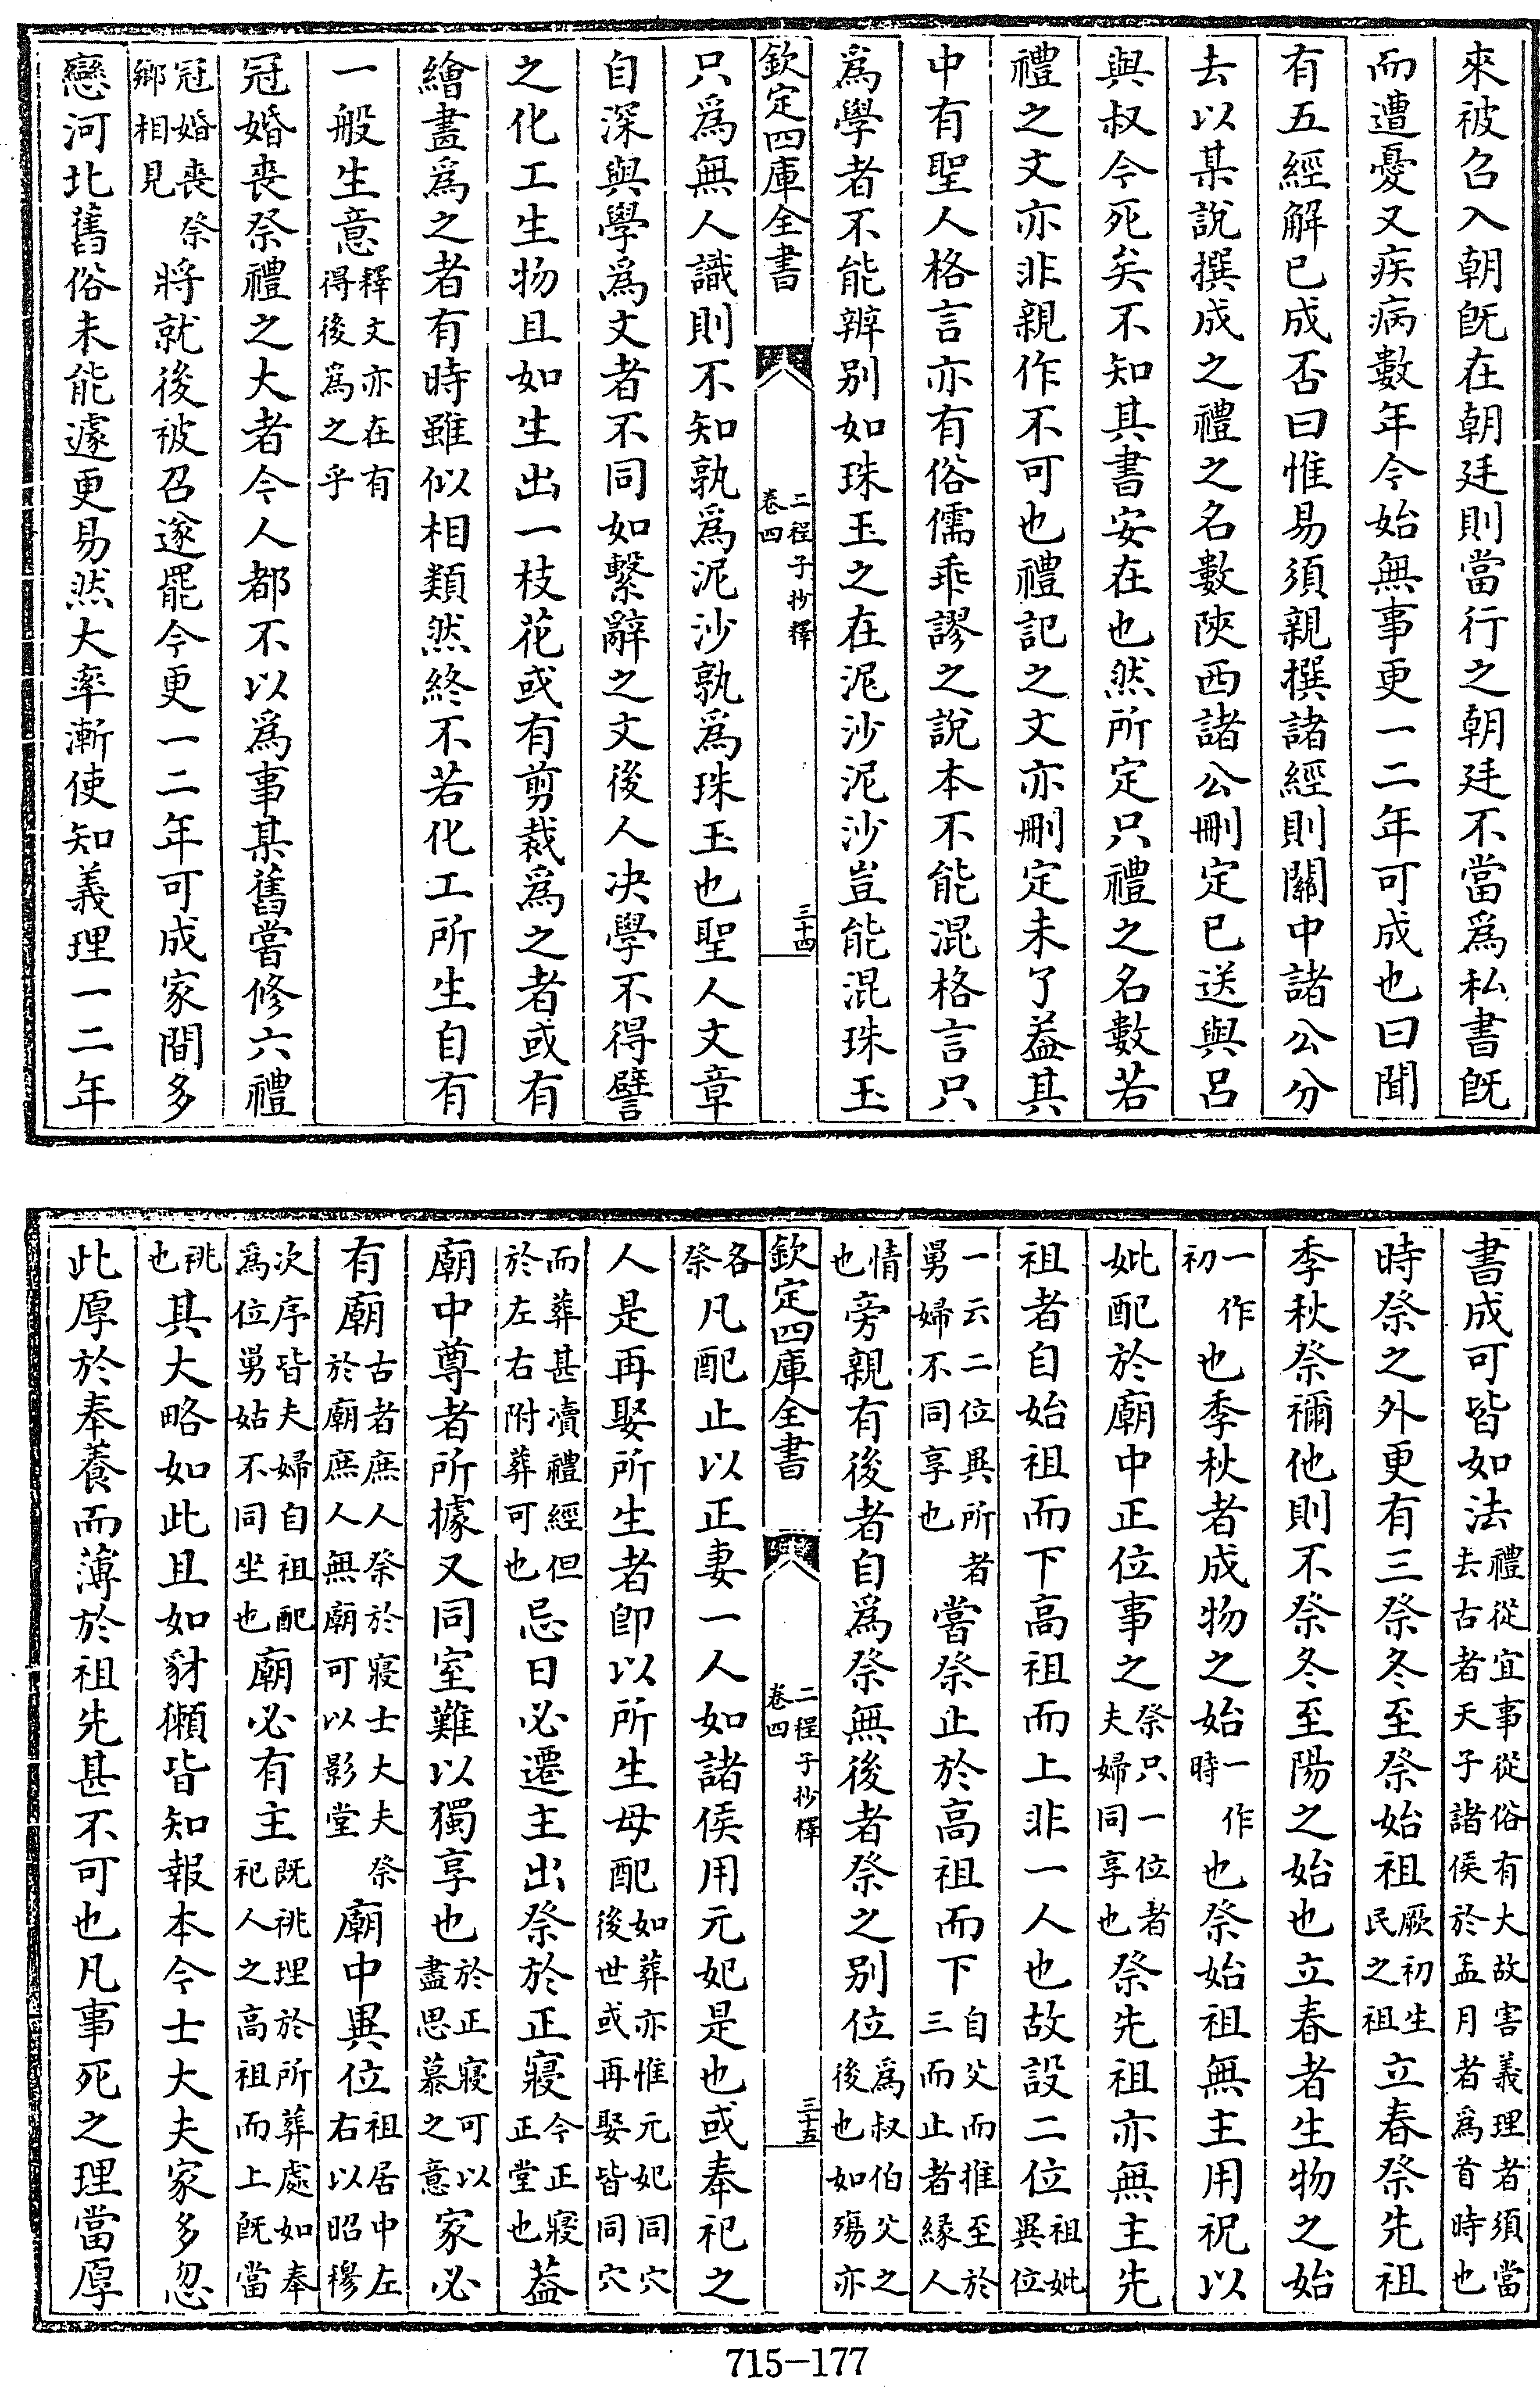 來被召入朝旣在朝廷則當行之朝廷不當爲私書旣
而遭憂又疾病數年今始無事更一二年可成也曰聞
有五經解已成否曰惟易須親撰諸經則關中諸公分
去以某說撰成之禮之名數陜西諸公刪定已送與呂
與叔今死矣不知其書安在也然所定只禮之名數若
禮之文亦非親作不可也禮記之文亦刪定未了葢其
中有聖人格言亦有俗儒乖謬之說本不能混格言只
爲學者不能辨别如珠玉之在泥沙泥沙豈能混珠玉
欽定四庫全書 二程子抄釋 卷四 三十四
只爲無人識則不知孰爲泥沙孰爲珠玉也聖人文章
自深與學爲文者不同如繫辭之文後人决學不得譬
之化工生物且如生出一枝花或有剪裁爲之者或有
繪畫爲之者有時雖似相類然終不若化工所生自有
一般生意釋文亦在有得後爲之乎
冠婚喪祭禮之大者今人都不以爲事某舊嘗修六禮
冠婚喪祭鄉相見將就後被召遂罷今更一二年可成家間多
戀河北舊俗未能遽更易然大率漸使知義理一二年
書成可皆如法禮從宜事從俗有大故害義理者須當去古者天子諸侯於孟月者爲首時也
時祭之外更有三祭冬至祭始祖厥初生民之祖立春祭先祖
季秋祭禰他則不祭冬至陽之始也立春者生物之始
一作初也季秋者成物之始一作時也祭始祖無主用祝以
妣配於廟中正位事之祭只一位者夫婦同享也祭先祖亦無主先
祖者自始祖而下高祖而上非一人也故設二位祖妣異位
一云二位異所者舅婦不同享也嘗祭止於高祖而下自父而推至於三而止者緣人
情也旁親有後者自爲祭無後者祭之别位爲叔伯父之後也如殤亦
欽定四庫全書 二程子抄釋 卷四 三十五
各祭凡配止以正妻一人如諸侯用元妃是也或奉祀之
人是再娶所生者卽以所生母配如葬亦惟元妃同穴後世或再娶皆同穴
而葬甚瀆禮經但於左右附葬可也忌日必遷主出祭於正寢今正寢正堂也葢
廟中尊者所據又同室難以獨享也於正寢可以盡思慕之意家必
有廟古者庶人祭於寢士大夫祭於廟庶人無廟可以影堂廟中異位祖居中左右以昭穆
次序皆夫婦自祖配爲位舅姑不同坐也廟必有主既祧埋於所葬處如奉祀人之高祖而上旣當
祧也其大略如此且如豺獺皆知報本今士大夫家多忽
此厚於奉養而薄於祖先甚不可也凡事死之理當厚
715-177